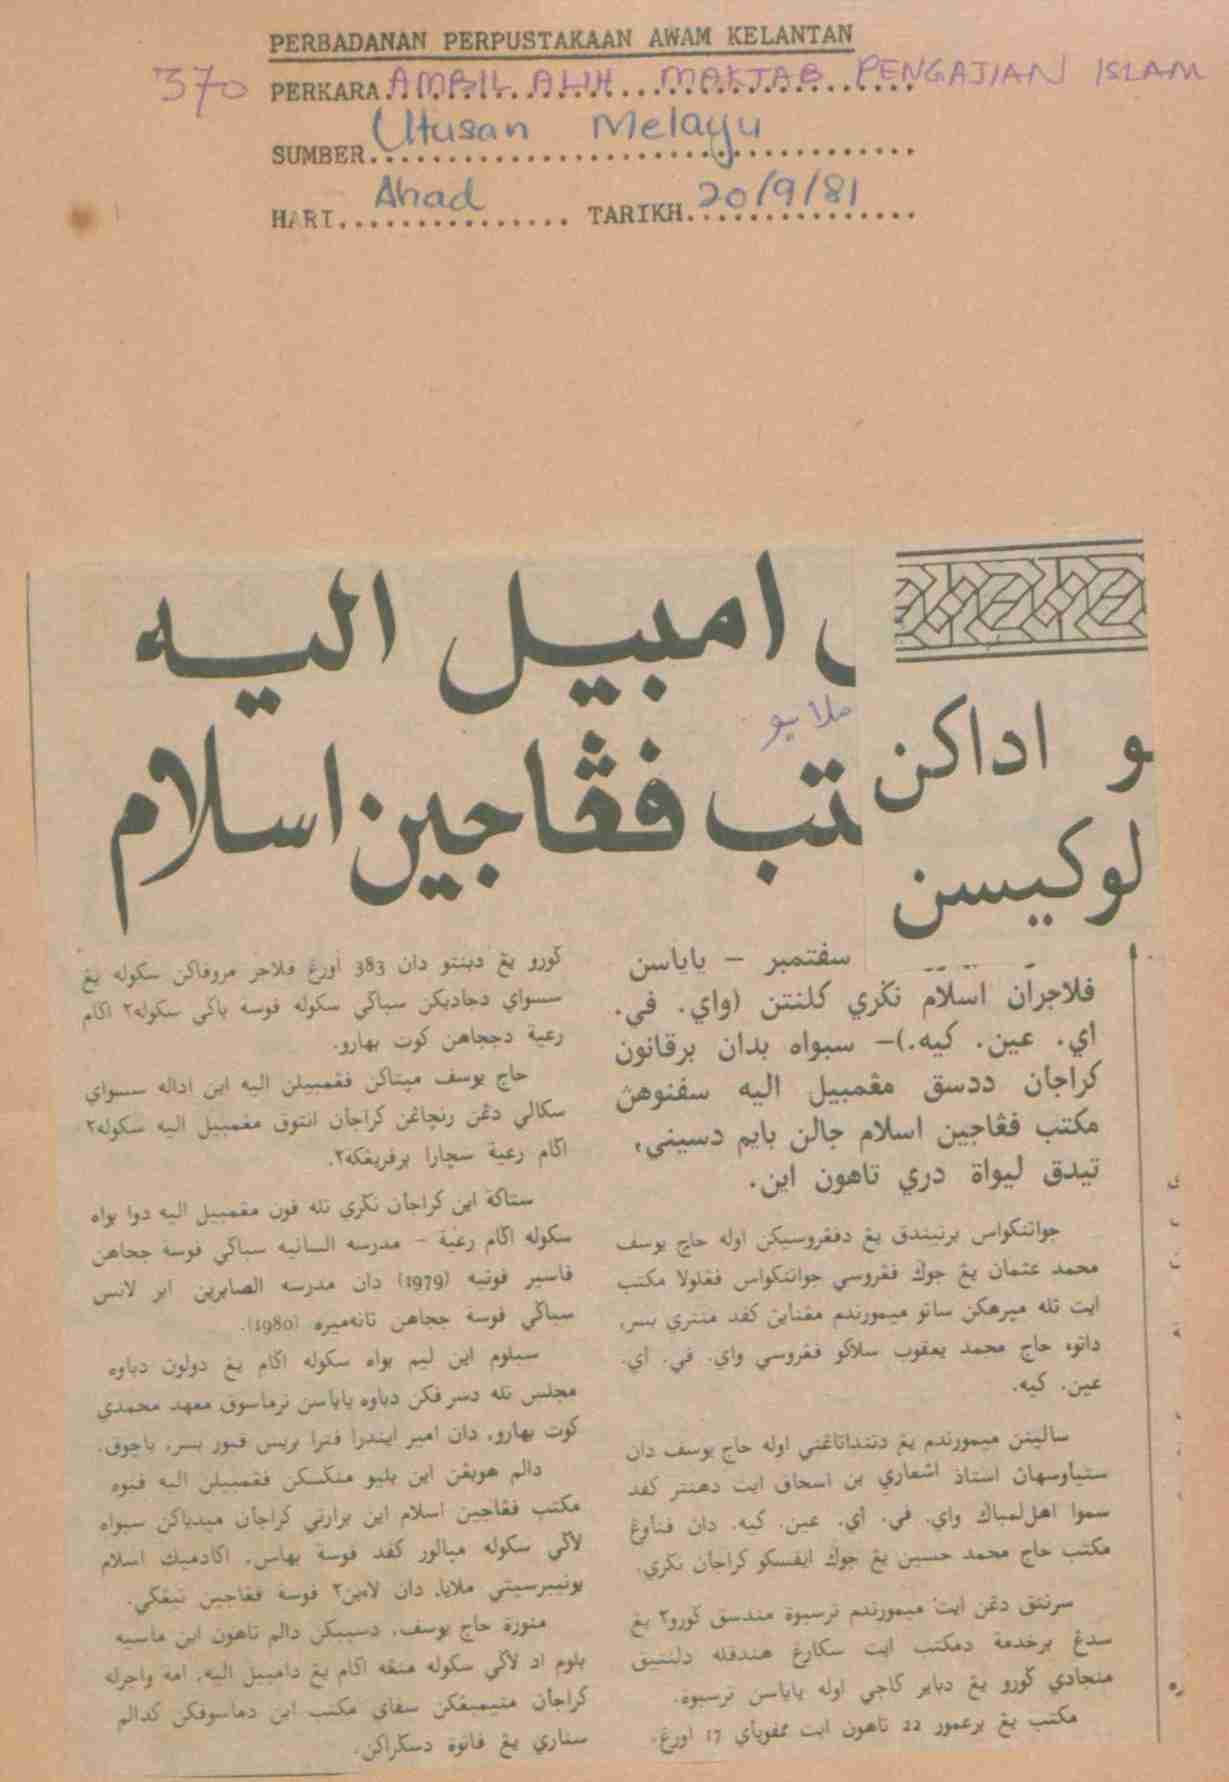 PERBADANAN PERPUSTAKAAN AWAM KELANTAN
370 PERKARA AMBIL ALIH MAKTAB PENGAJIAN ISLAM
SUMBER Utusan Melayu
HARI Ahad TARIKH 20/9/81
امبيل اليه
ملايو
تب ڤڠاجين اسلام
و اداكن
لوكيسن
سڤتمبر – ياياسن
ڤلاجران اسلام نݢري كلنتن (واي. ڤي.
اي. عين. كيه.)– سبواه بدان برقانون
كراجان ددسق مڠمبيل اليه سڤنوهڽ
مكتب ڤڠاجين اسلام جالن بايم دسيني،
تيدق ليواة دري تاهون اين.
جواتنكواس برتيندق يڠ دڤڠروسيكن اوله حاج يوسف
محمد عثمان يڠ جوݢ ڤڠروسي جواتنكواس ڤڠلولا مكتب
ايت تله ميرهكن ساتو ميمورندم مڠناين كڤد منتري بسر،
داتوء حاج محمد يعقوب سلاكو ڤڠروسي واي. ڤي. اي.
عين. كيه.
سالينن ميمورندم يڠ دتنداتاڠني اوله حاج يوسف دان
ستياوسهاڽ استاذ اشعاري بن اسحاق ايت دهنتر كڤد
سموا اهل لمباݢ واي. ڤي. اي. عين. كيه. دان ڤناوڠ
مكتب حاج محمد حسين يڠ جوݢ ايفسكو كراجان نݢري.
سرنتق دڠن ايت ميمورندم ترسبوة مندسق ݢورو٢ يڠ
سدڠ برخدمة دمكتب ايت سكارڠ هندقله دلنتيق
منجادي ݢورو يڠ دباير ݢاجي اوله ياياسن ترسبوة.
مكتب يڠ برعمور 22 تاهون ايت ممڤوڽاي 17 اورڠ
ݢورو يڠ دبنتو دان 383 اورڠ ڤلاجر مروڤاكن سكوله يڠ
سسواي دجاديكن سباݢي سكوله ڤوسة باݢي سكوله٢ اݢام
رعية دججاهن كوت بهارو.
حاج يوسف ميتاكن ڤڠمبيلن اليه اين اداله سسواي
سكالي دڠن رنچاڠن كراجان انتوق مڠمبيل اليه سكوله٢
اݢام رعية سچارا برڤريڠكة٢.
ستاكة اين كراجان نݢري تله ڤون مڠمبيل اليه دوا بواه
سكوله اݢام رعية – مدرسه السانيه سباݢي ڤوسة ججاهن
ڤاسير ڤوتيه (1979) دان مدرسه الصابرين اير لانس
سباݢي ڤوسة ججاهن تانه ميره (1980).
سبلوم اين ليم بواه سكوله اݢام يڠ دولون دباوه
مجلس تله دسرڤكن دباوه ياياسن ترماسوق معهد محمدي
كوت بهارو، دان امير ايندرا ڤترا بريس كبور بسر، باچوق.
دالم هوبڠن اين بليو منݢسكن ڤڠمبيلن اليه ڤنوه
مكتب ڤڠاجين اسلام اين برارتي كراجان ميدياكن سبواه
لاݢي سكوله ميالور كڤد ڤوسة بهاس، اكاديميك اسلام
يونيبرسيتي ملايا، دان لاءين٢ ڤوسة ڤڠاجين تيڠݢي.
منورة حاج يوسف، دسببكن دالم تاهون اين ماسيه
بلوم اد لاݢي سكوله منڠه اݢام يڠ دامبيل اليه، امة واجرله
كراجان منيمبڠكن سڤاي مكتب اين دماسوقكن كدالم
سناري يڠ ڤاتوة دسݢراكن.